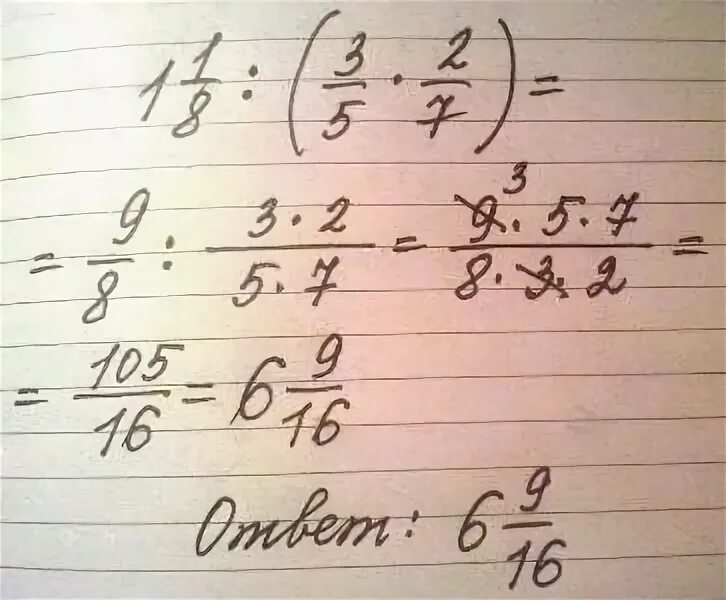 1 1/8 : (3/5 · 2/7) =
= 9/8 : 3·2/5·7 = 9³·5·7/8·3·2 =
= 105/16 = 6 9/16
Ответ: 6 9/16